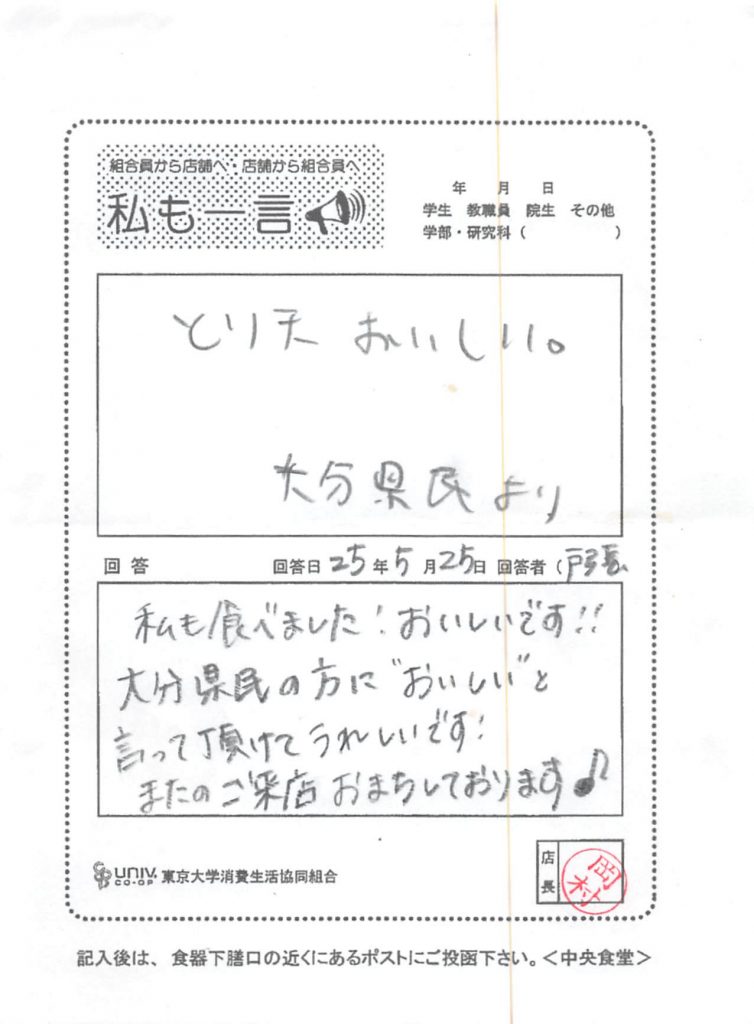 組合員から店舗へ・店舗から組合員へ
私も一言
年 月 日
学生 教職員 院生 その他
学部・研究科( )
とり天 おいしい。
大分県民 より
回答 回答日 25年5月25日 回答者(戸張
私も食べました!おいしいです!!
大分県民の方に"おいしい"と
言って頂けてうれしいです!
またのご来店おまちしております♪
UNIV. CO-OP 東京大学消費生活協同組合
店長
岡村
記入後は、食器下膳口の近くにあるポストにご投函下さい。<中央食堂>